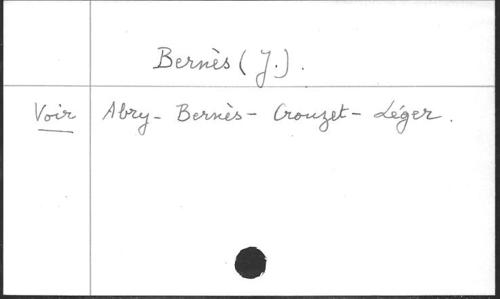 Bernès (J.).
Voir Abry - Bernès - Crouzet - Léger.